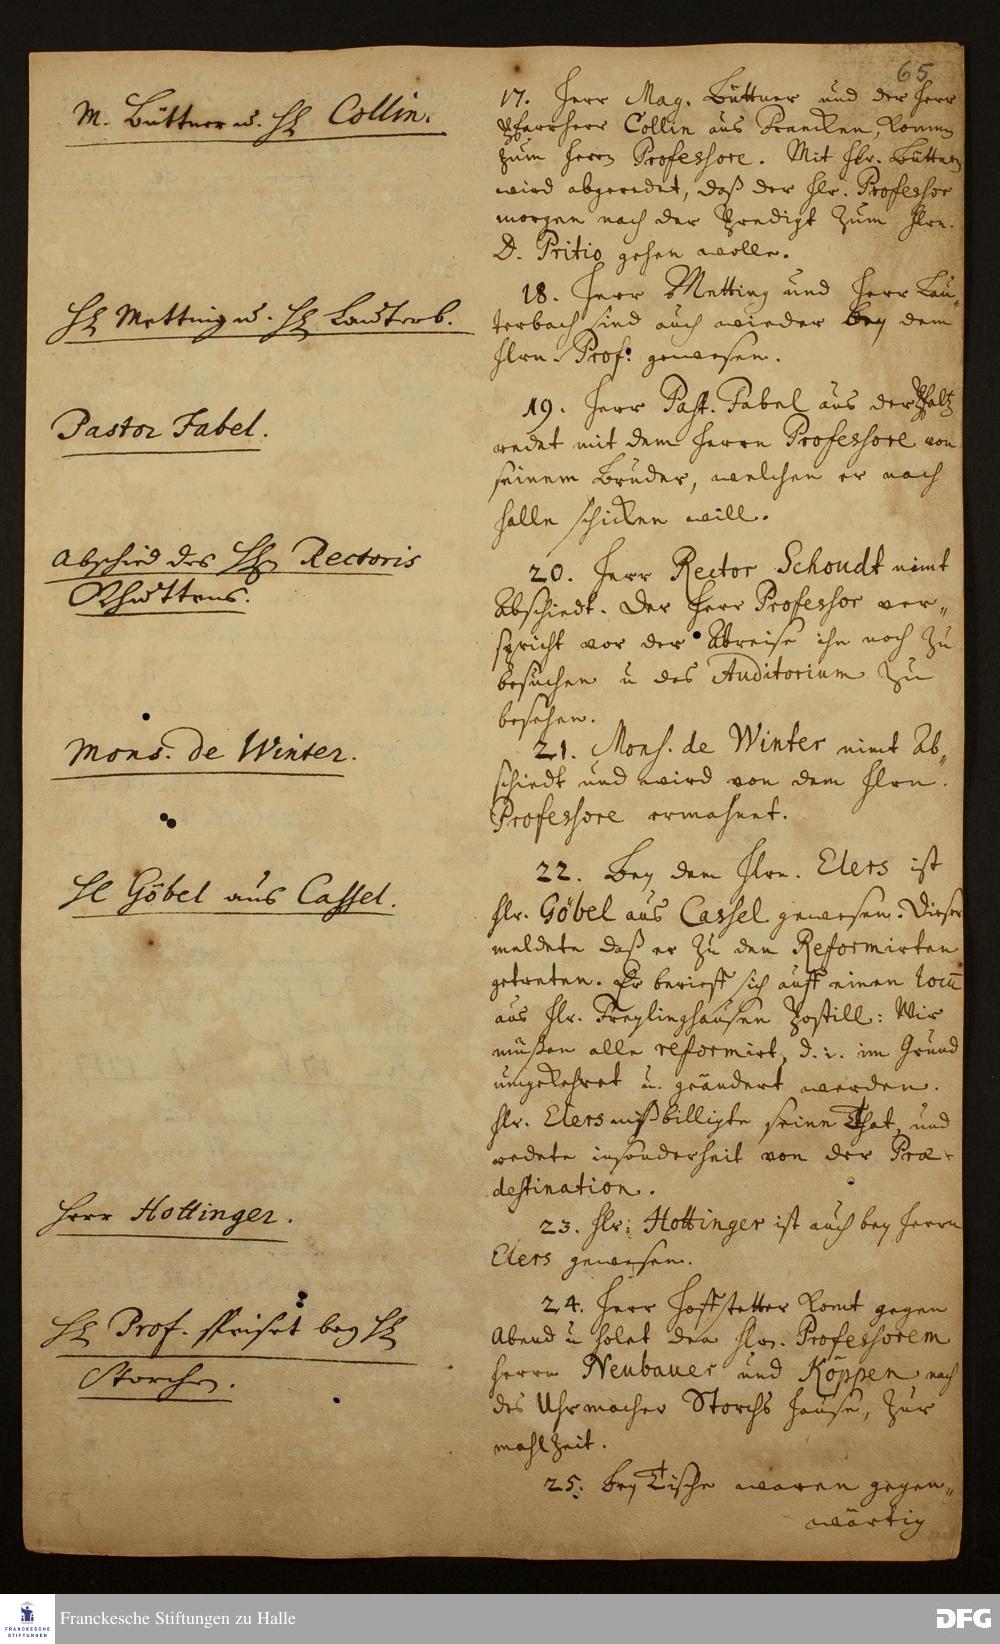 65
M. Büttner u. H Collin.
17. Herr Mag. Büttner und der Herr
Pfarrherr Collin aus Francken, komen
zum Herrn Professore. Mit Hr. Büttner
wird abgeredet, daß der Hr. Professor
morgen nach der Predigt zum Hrn.
D. Pritio gehen wolle.
H Metting u. H Lauterb.
18. Herr Metting und Herr Lau-
terbach sind auch wieder bey dem
Hrn. Prof: gewesen.
Pastor Fabel.
19. Herr Past. Fabel aus der Pfaltz
redet mit dem Herrn Professore von
seinem Bruder, welchen er nach
Halle schicken will.
Abschied des HEn Rectoris
20. Herr Rector Schoudt nimt
Abschiedt. Der Herr Professor ver-
spricht vor der Abreise ihn noch zu
besuchen u das Auditorium zu
besehen.
Mons. de Winter.
21. Mons. de Winter nimt Ab-
schiedt und wird von dem Hrn.
Professore ermahnet.
H Göbel aus Cassel.
22. Bey dem Hrn. Elers ist
Hr. Göbel aus Cassel gewesen. Dieser
meldete daß er zu den Reformirten
getreten. Er berieff sich auff einen locū
aus Hr. Freylinghausen Postill: Wir
müßen alle reformirt, d. i. im Grund
umgekehret u. geändert werden.
Hr. Elers mißbilligte seine That, und
redete insonderheit von der Præ-
destination.
Herr Hottinger.
23. Hr: Hottinger ist auch bey Herrn
Elers gewesen.
H Prof. speiset bey H
Storchen.
24. Herr Hoffstetter komt gegen
Abend u holet den Hrn. Professorem
Herrn Neubauer und Köppen nach
des Uhrmacher Storchs Hause, zur
mahlzeit.
25. bey Tische waren gegen-
wärtig
Franckesche Stiftungen zu Halle
FRANCKESCHE
STIFTUNGEN
DFG